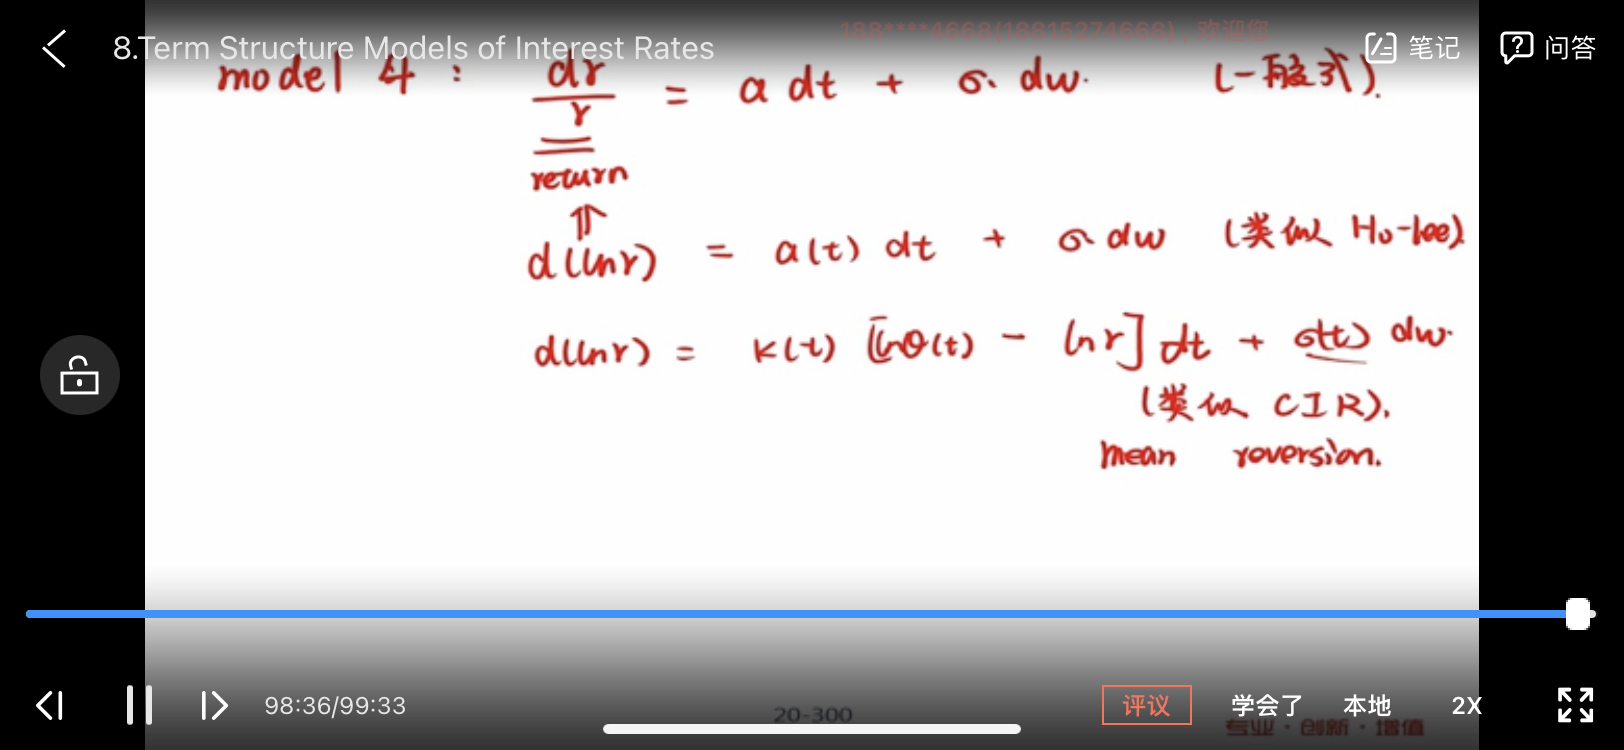 188****4668(18815274668)，欢迎您
8.Term Structure Models of Interest Rates
笔记
问答
model 4 : dr/r = a dt + σ· dw· (一般式).
return
⇑
d(lnr) = a(t) dt + σ dw (类似 Ho-lee)
d(lnr) = k(t) [lnθ(t) - lnr] dt + σ(t) dw·
(类似 CIR).
mean roversion.
98:36/99:33
20-300
评议
学会了
本地
2X
专业·创新·增值